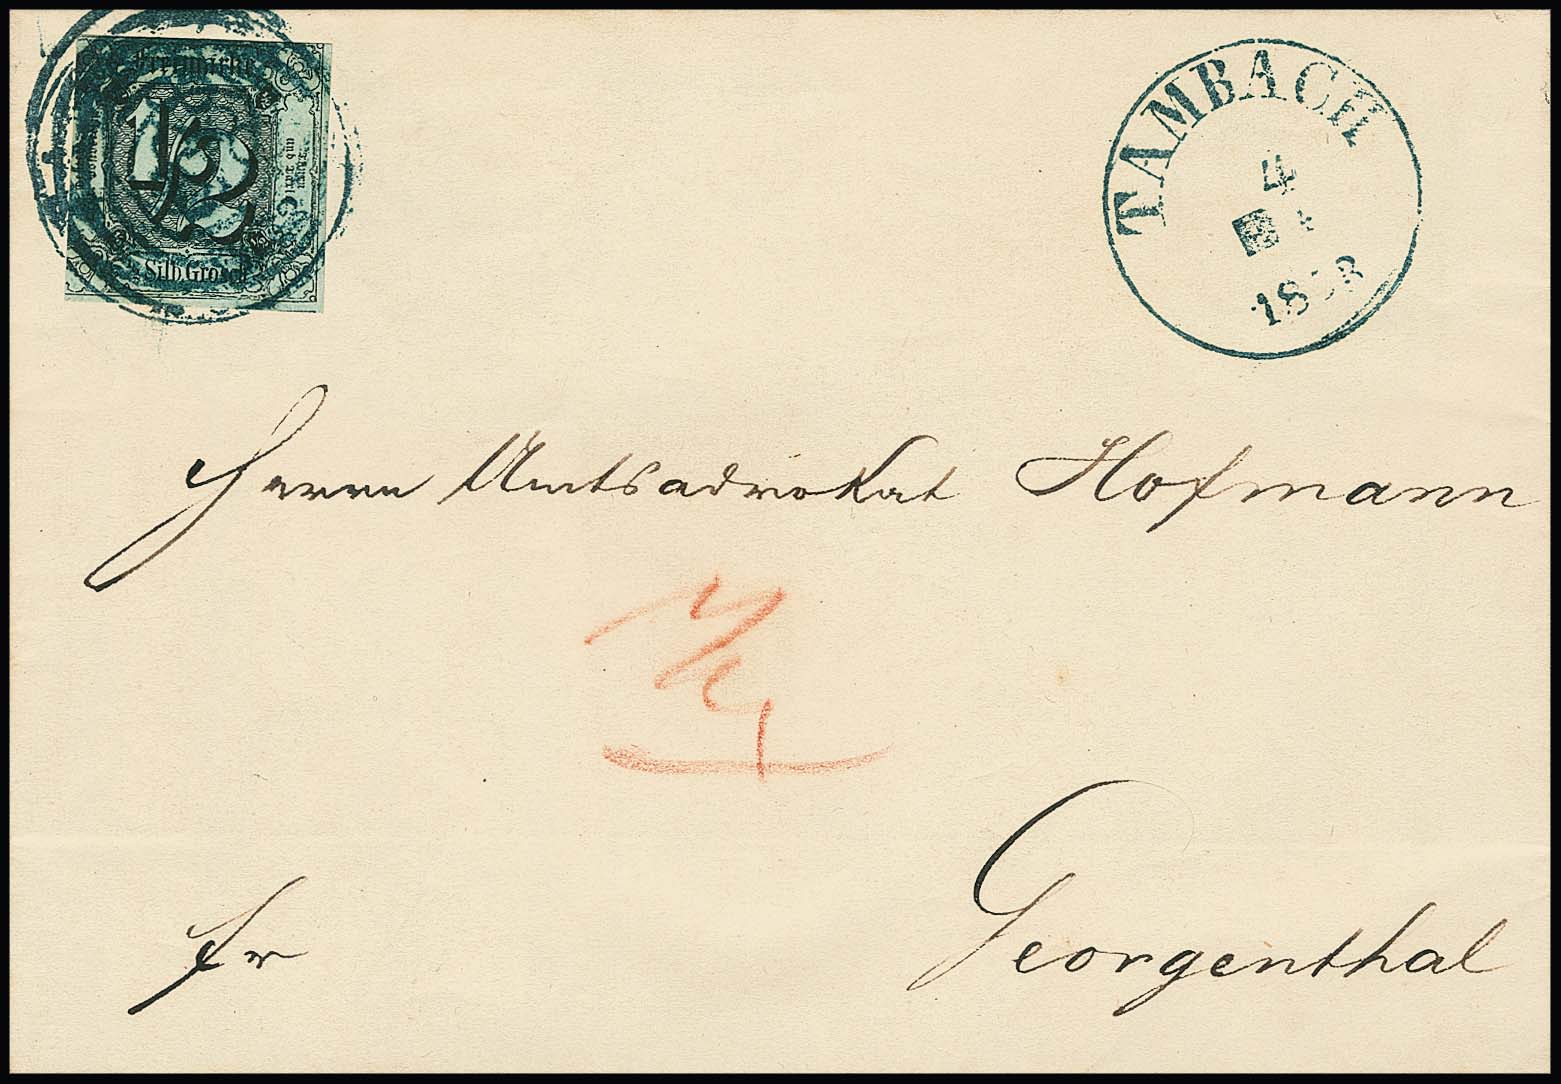 Freimarke
1/2
und Taxis
Silb. Grosch
TAMBACH
4
Herrn Amtsadvokat Hofmann
fr
Georgenthal